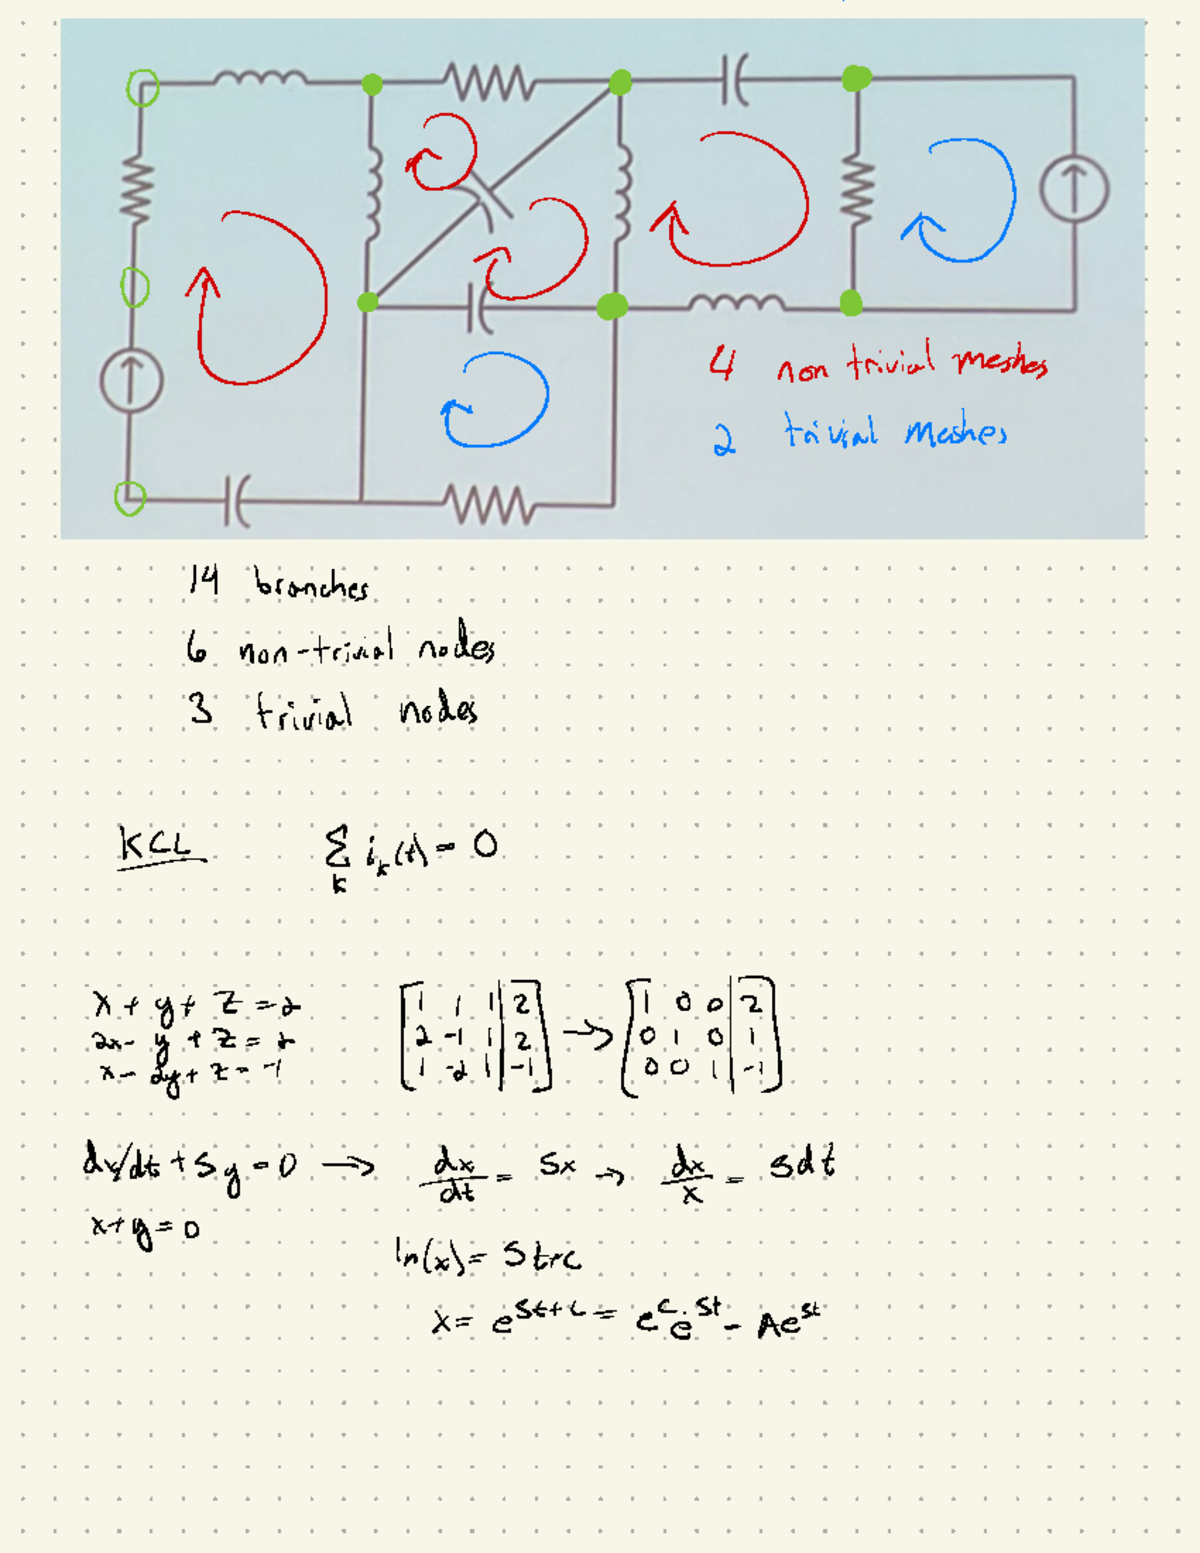 4 non trivial meshes
2 trivial meshes
14 branches
6 non-trivial nodes
3 trivial nodes
KCL  ∑_k i_k(t) = 0
x + y + z = 2
2x - y + z = 2
x - 2y + z = -1
[1 1 1 | 2; 2 -1 1 | 2; 1 -2 1 | -1] → [1 0 0 | 2; 0 1 0 | 1; 0 0 1 | -1]
dx/dt + 5y = 0 → dx/dt = 5x → dx/x = 5dt
x + y = 0
ln(x) = 5t + c
x = e^{5t+c} = e^c · e^{5t} = Ae^{5t}